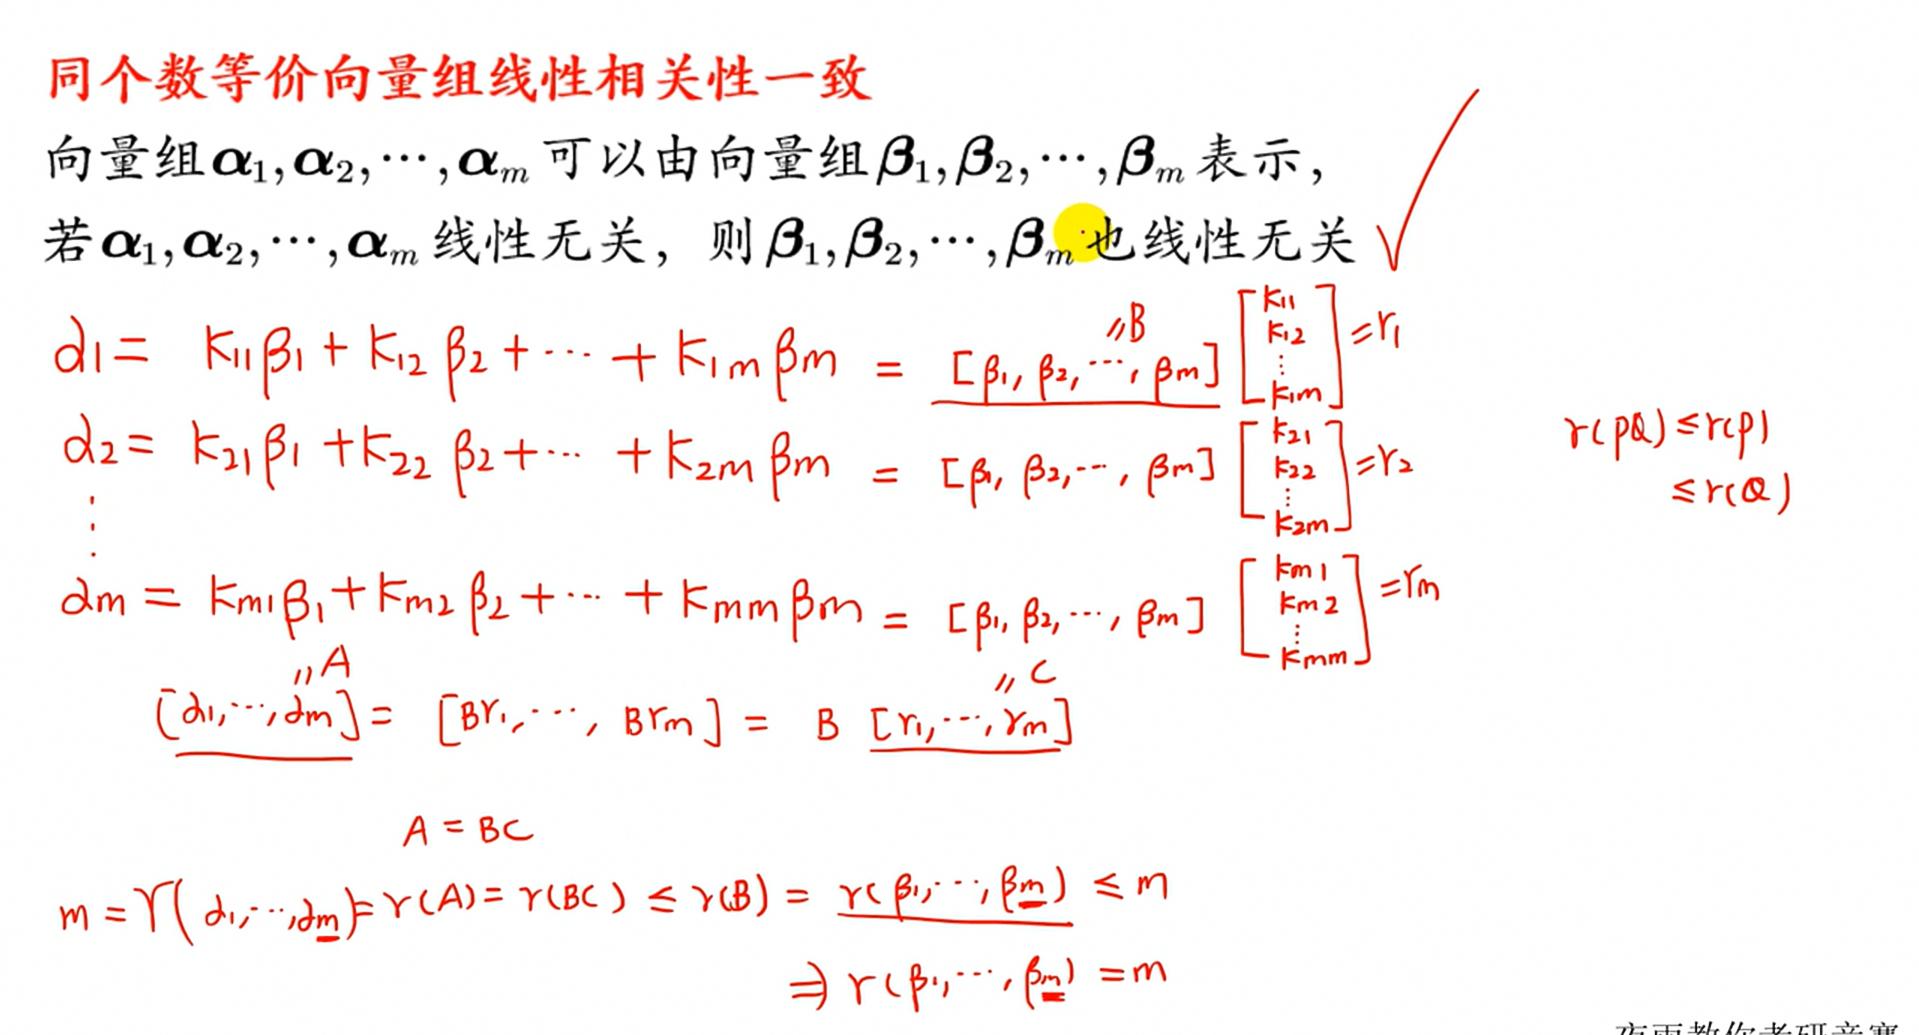 同个数等价向量组线性相关性一致
向量组α₁,α₂,⋯,αₘ可以由向量组β₁,β₂,⋯,βₘ表示，
若α₁,α₂,⋯,αₘ线性无关，则β₁,β₂,⋯,βₘ也线性无关
α₁ = k₁₁β₁ + k₁₂β₂ + ⋯ + k₁ₘβₘ = [β₁, β₂, ⋯, βₘ] [k₁₁ k₁₂ ⋮ k₁ₘ] = r₁
〃B
α₂ = k₂₁β₁ + k₂₂β₂ + ⋯ + k₂ₘβₘ = [β₁, β₂, ⋯, βₘ] [k₂₁ k₂₂ ⋮ k₂ₘ] = r₂
⋮
αₘ = kₘ₁β₁ + kₘ₂β₂ + ⋯ + kₘₘβₘ = [β₁, β₂, ⋯, βₘ] [kₘ₁ kₘ₂ ⋮ kₘₘ] = rₘ
r(PQ) ≤ r(P)
≤ r(Q)
〃A 〃C
[α₁, ⋯, αₘ] = [Br₁, ⋯, Brₘ] = B [r₁, ⋯, rₘ]
A = BC
m = r(α₁, ⋯, αₘ) = r(A) = r(BC) ≤ r(B) = r(β₁, ⋯, βₘ) ≤ m
⇒ r(β₁, ⋯, βₘ) = m